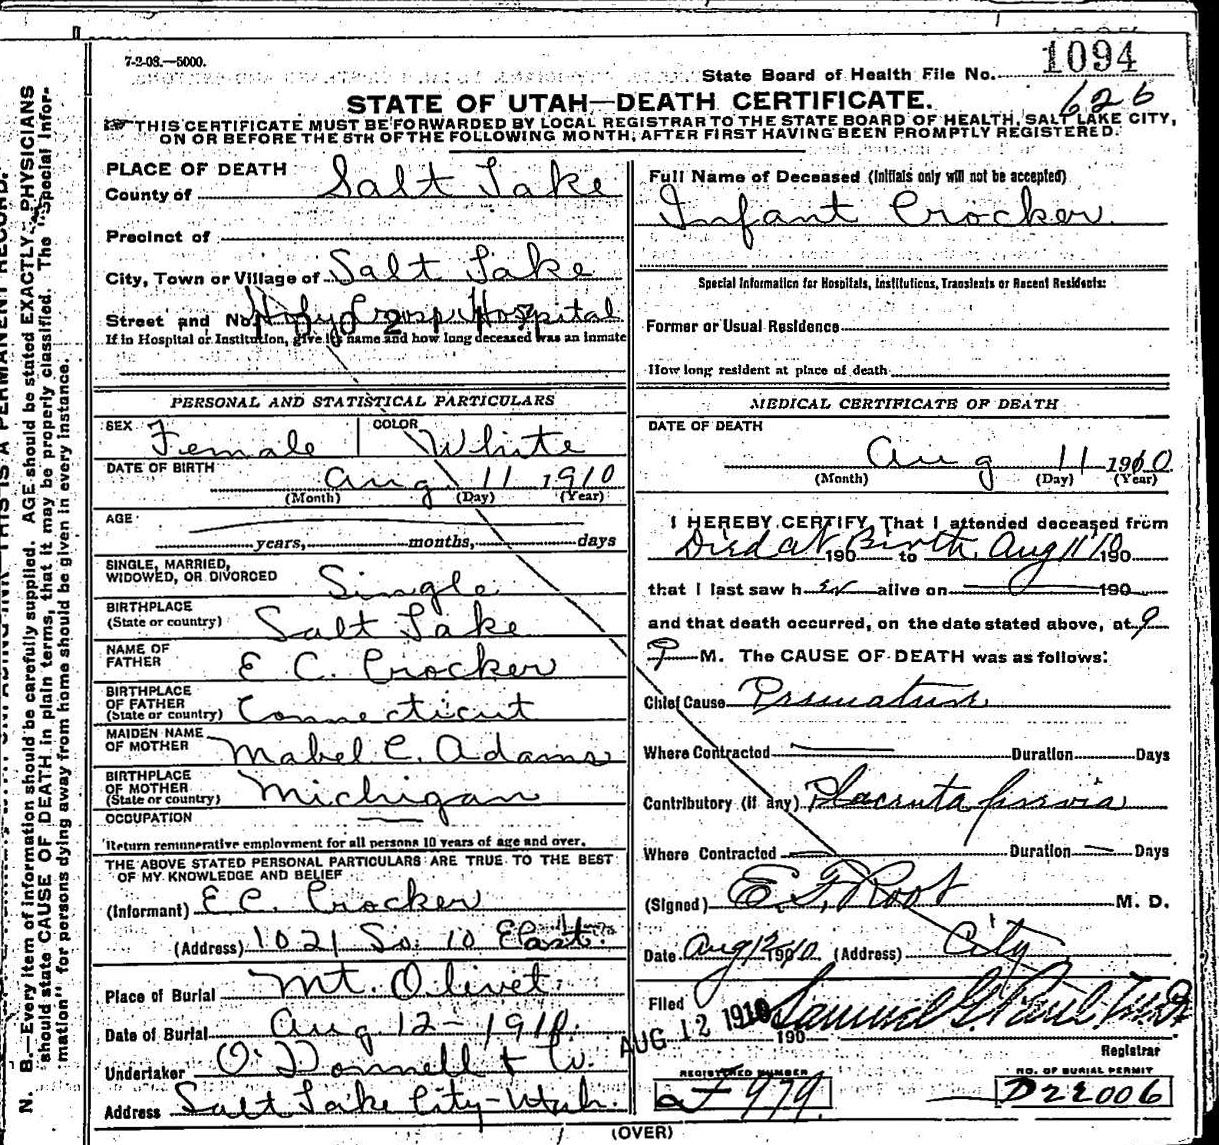 7-2-08.—5000.
State Board of Health File No. 1094
626
STATE OF UTAH—DEATH CERTIFICATE.
THIS CERTIFICATE MUST BE FORWARDED BY LOCAL REGISTRAR TO THE STATE BOARD OF HEALTH, SALT LAKE CITY,
ON OR BEFORE THE 5TH OF THE FOLLOWING MONTH, AFTER FIRST HAVING BEEN PROMPTLY REGISTERED.
PLACE OF DEATH
County of Salt Lake
Precinct of
City, Town or Village of Salt Lake
Street and No. Holy Cross Hospital
If in Hospital or Institution, give its name and how long deceased was an inmate
PERSONAL AND STATISTICAL PARTICULARS
SEX Female COLOR White
DATE OF BIRTH Aug 11 1910
(Month) (Day) (Year)
AGE
years, months, days
SINGLE, MARRIED,
WIDOWED, OR DIVORCED Single
BIRTHPLACE
(State or country) Salt Lake
NAME OF
FATHER E C. Crocker
BIRTHPLACE
OF FATHER
(State or country) Connecticut
MAIDEN NAME
OF MOTHER Mabel C. Adams
BIRTHPLACE
OF MOTHER
(State or country) Michigan
OCCUPATION
Return remunerative employment for all persons 10 years of age and over.
THE ABOVE STATED PERSONAL PARTICULARS ARE TRUE TO THE BEST
OF MY KNOWLEDGE AND BELIEF
(Informant) E C. Crocker
(Address) 1021 So. 10 East.
Place of Burial Mt. Olivet.
Date of Burial Aug. 12 - 1910.
Undertaker O'Donnell + Co.
Address Salt Lake City - Utah.
Full Name of Deceased (Initials only will not be accepted)
Infant Crocker
Special Information for Hospitals, Institutions, Transients or Recent Residents:
Former or Usual Residence
How long resident at place of death
MEDICAL CERTIFICATE OF DEATH
DATE OF DEATH
Aug 11 1910
(Month) (Day) (Year)
I HEREBY CERTIFY That I attended deceased from
Died at Birth 190 to Aug 11/10 190
that I last saw h er alive on 190
and that death occurred, on the date stated above, at 9
P M. The CAUSE OF DEATH was as follows:
Chief Cause Premature
Where Contracted Duration Days
Contributory (if any) Placenta previa
Where Contracted Duration Days
(Signed) E. F. Root M. D.
Date Aug 12 1910. (Address) City
Filed AUG 12 1910 190 Samuel G. Paul. M.D.
Registrar
REGISTERED NUMBER
979
NO. OF BURIAL PERMIT
D22006
(OVER)
N. B.—Every item of information should be carefully supplied. AGE should be stated EXACTLY. PHYSICIANS
should state CAUSE OF DEATH in plain terms, that it may be properly classified. The "Special Infor-
mation" for persons dying away from home should be given in every instance.